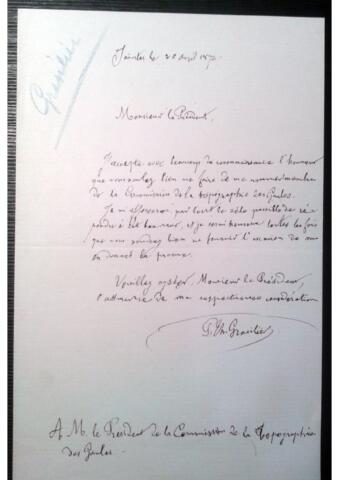 Grasilier
Saintes le 20 avril 187
Monsieur le Président,
J'accepte avec beaucoup de reconnaissance l'honneur
que vous voulez bien me faire de me nommer membre
de la Commission de la topographie des Gaules.
Je m'efforcerai par tout le zèle possible de ré-
pondre à cet honneur, et je serai heureux toutes les fois
que vous voudrez bien me fournir l'occasion de vous
en donner la preuve.
Veuillez agréer, Monsieur le Président,
l'assurance de ma respectueuse considération
P. Th. Grasilier
A M. le Président de la Commission de la topographie
des Gaules.